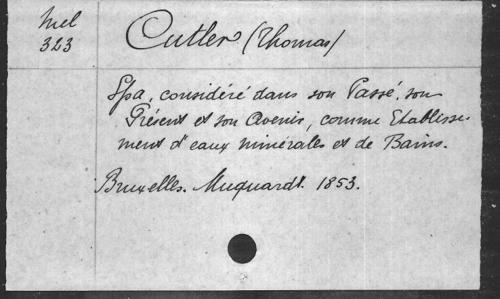 Mel
323
Cutler (Thomas)
Spa, considéré dans son Passé, son
Présent et son Avenir, comme Etablisse
ment d'eaux minérales et de Bains.
Bruxelles. Muquardt. 1853.